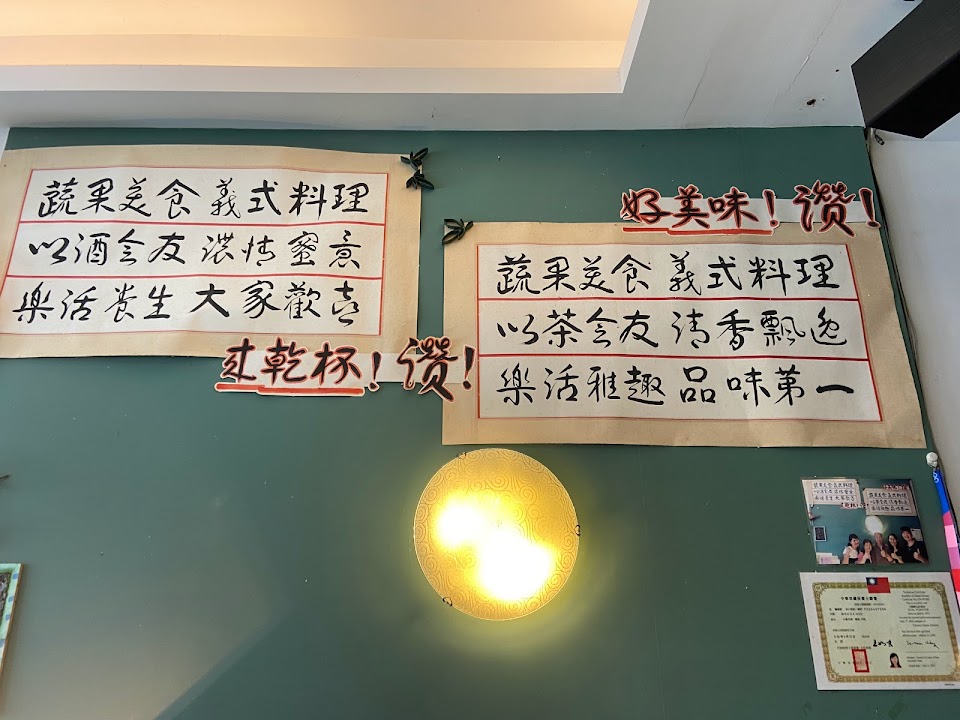 蔬果美食 義式料理
以酒会友 濃情蜜意
樂活养生 大家歡喜
来乾杯！讚！
好美味！讚！
蔬果美食 義式料理
以茶会友 清香飄逸
樂活雅趣 品味第一